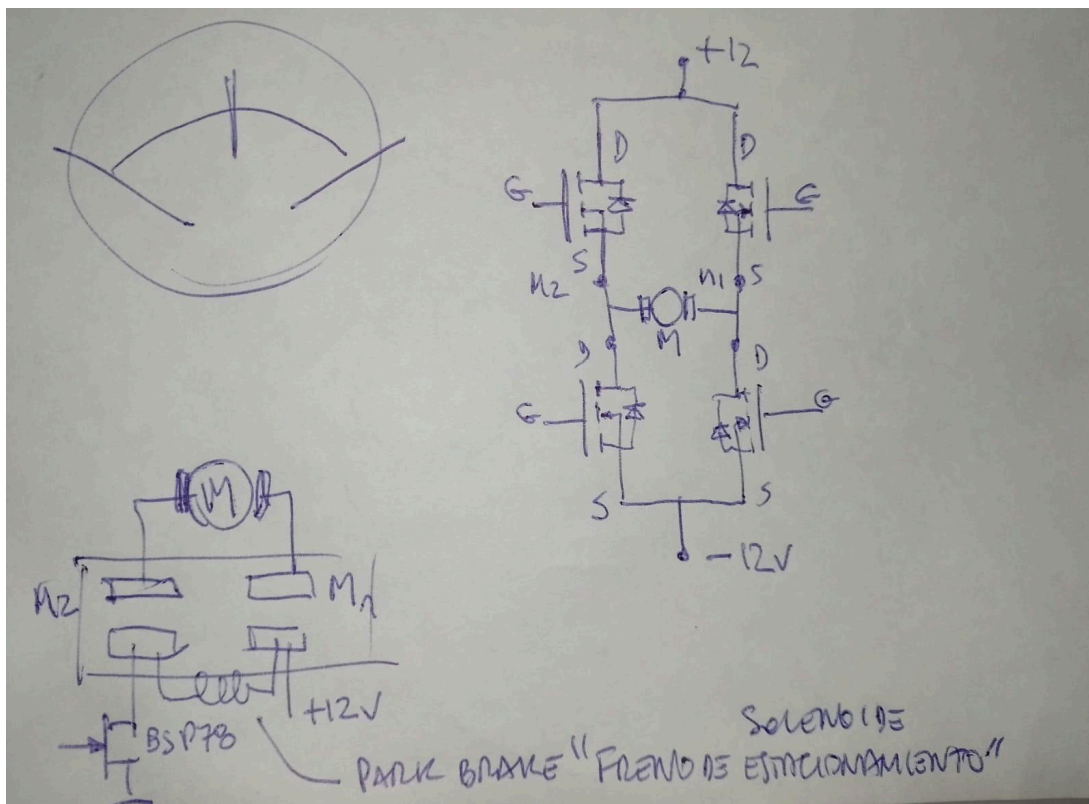 +12
D D
G G
S S
M2 M1
M
D D
G G
S S
-12V
M
M2 M1
+12V
BSP78
SOLENOIDE
PARK BRAKE "FRENO DE ESTACIONAMIENTO"